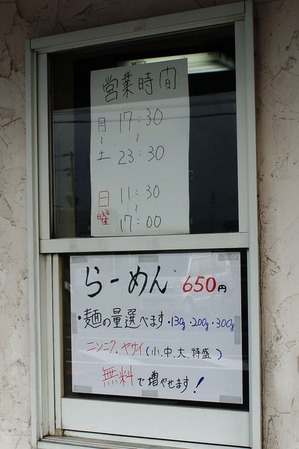 営業時間
月 17:30
～
土 23:30
日 11:30
～
曜 17:00
らーめん 650円
・麺の量選べます・130g・200g・300g
ニンニク、ヤサイ(小、中、大、特盛)
無料で増やせます!